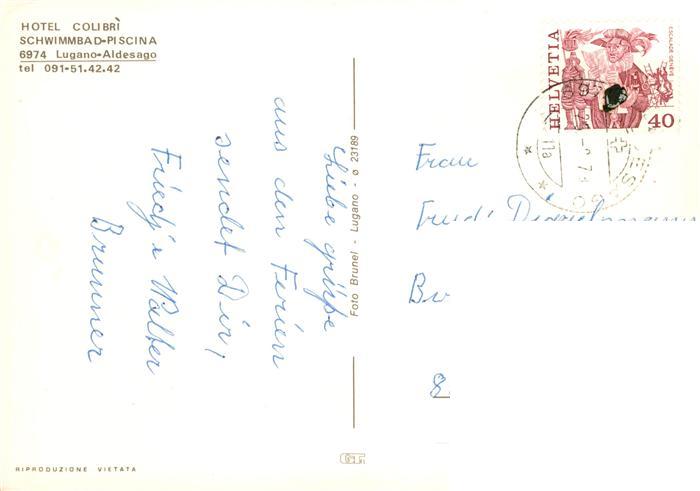 HOTEL COLIBRÌ
SCHWIMMBAD-PISCINA
6974 Lugano-Aldesago
tel 091-51.42.42
HELVETIA
ESCALADE GENÈVE
40
Liebe grüße
aus den Ferien
sendet Dir,
Walter
Brunner
Foto Brunel - Lugano - ø 23189
Frau
8
RIPRODUZIONE VIETATA